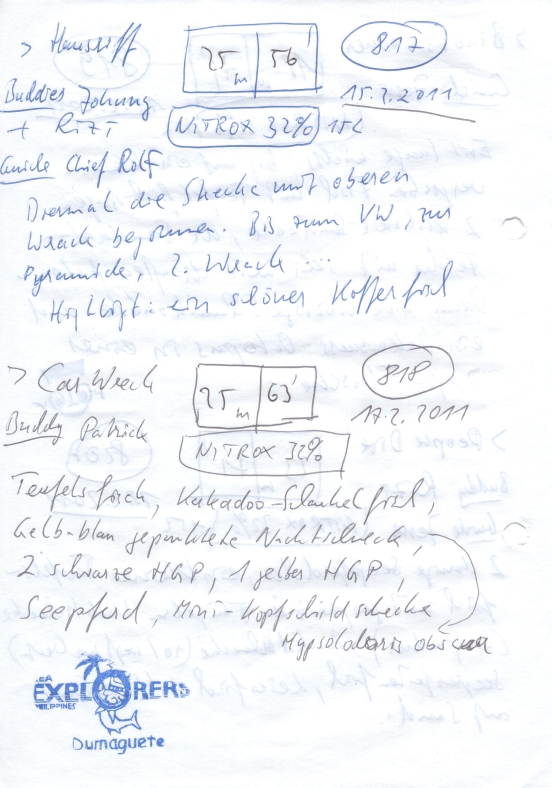 > Hausriff 25m 56' 817
Buddies Johung 15.2.2011
+ Rizi NiTROX 32% 15L
Guide Chief Rolf
Diesmal die Strecke mit oberen
Wrack begonnen. Bis zum VW, zur
Pyramide, 2. Wrack ...
Highlight: ein schöner Kofferfisch
> Car Wreck 25m 63' 818
Buddy Patrick 17.2.2011
NiTROX 32%
Teufelsfisch, Kakadoo-Schaukelfisch,
Gelb-blau gepunktete Nachtschneck,
2 schwarze HGP, 1 gelber HGP,
Seepferd, Mini-Kopfschildschnecke
Hypselodoris obscura
SEA
EXPLORERS
PHILIPPINES
Dumaguete